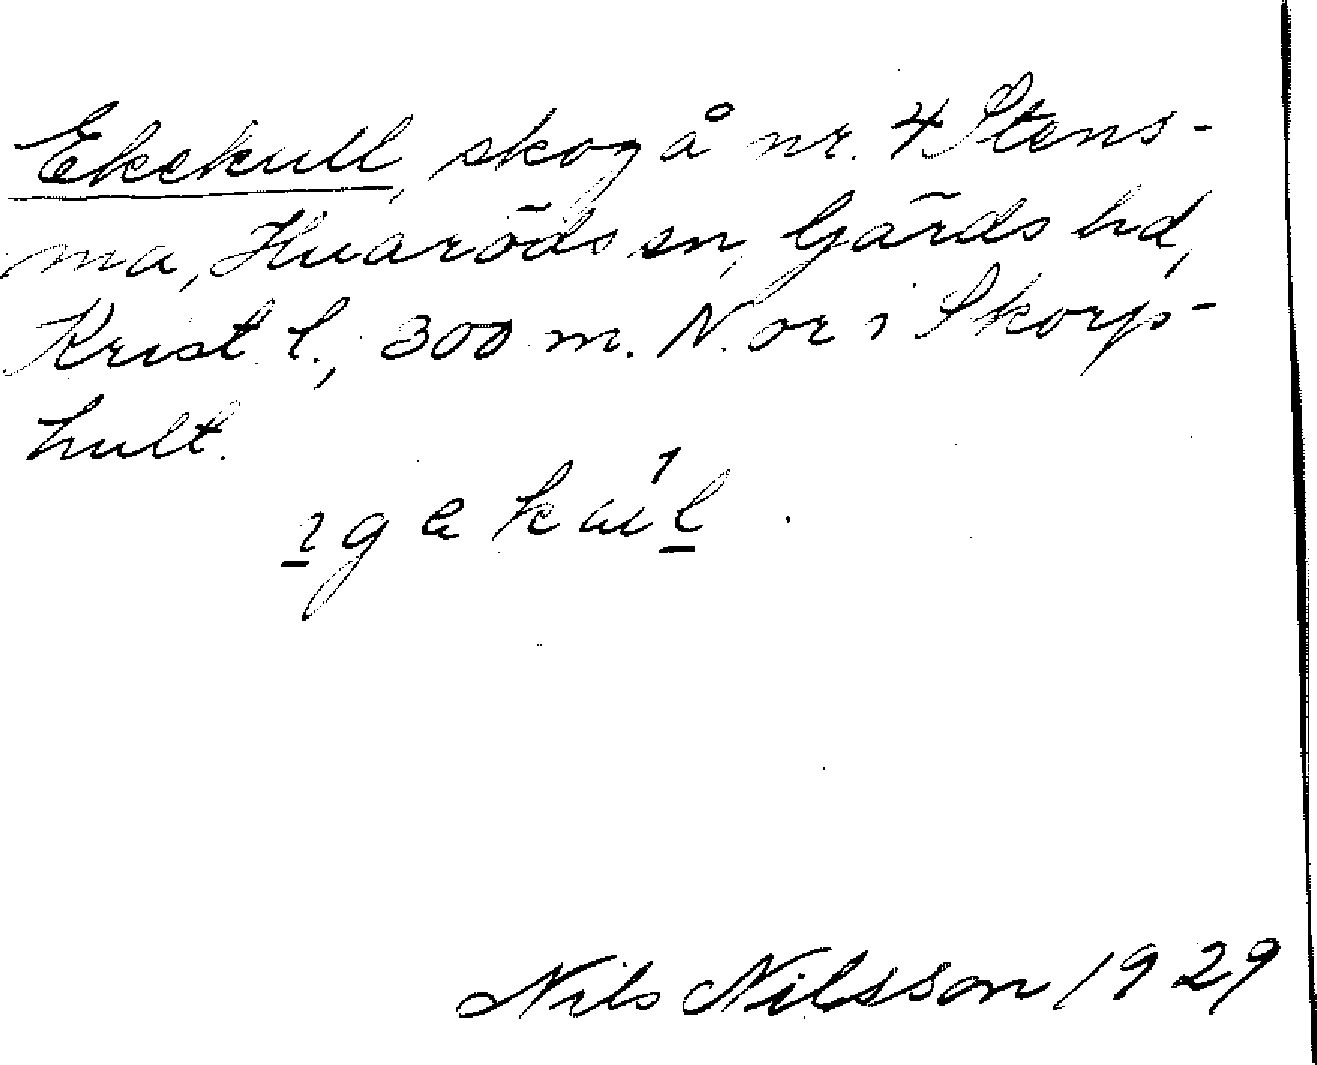 Ekekull, skog å nr. 4 Stens-
ma, Huaröds sn, Gärds hd,
Krist. l., 300 m. N. or 1 Skorp-
hult.
Nils Nilsson 1929